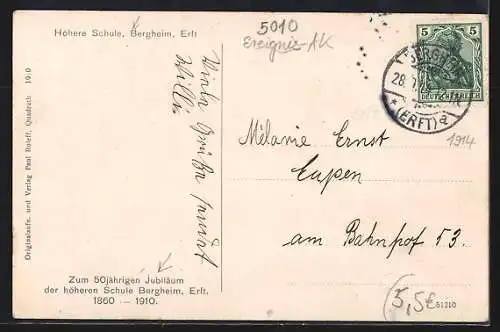 Höhere Schule, Bergheim, Erft
5010
Ereignis-AK
5 5
DEUTSCHES REICH
BERGHEIM
28.
* (ERFT) a
1914
Viele Grüße sendet
Willi
Mélanie Ernst
Eupen
am Bahnhof 53.
Originalaufn. und Verlag Paul Roleff, Quadrath 1910
Zum 50jährigen Jubiläum
der höheren Schule Bergheim, Erft.
1860 — 1910.
3,5€
51210